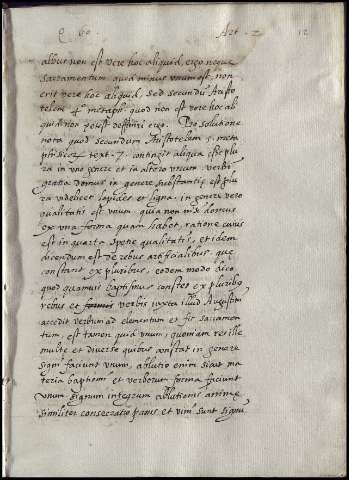 Q. 60. Art. 2 12
albus non est vere hoc aliquid, ergo neque
sacramentum quod minus unum est, non
erit vere hoc aliquid. sed secundum Aristo
telem 4º metaph. quod non est vere hoc ali
quid non potest deffiniri ergo. Pro solutione
nota quod secundum Aristotelem 5. meta
phisicæ text. 7. contingit aliqua esse plu
ra in uno genere et in altero unum. verbi
gratia domus in genere substantiæ est plu
ra videlicet lapides et ligna. in genere vero
qualitatis est unum. quia non nisi domus
ex una forma quam habet, ratione cuius
est in quarta spetie qualitatis, et idem
dicendum est de rebus artificialibus que
constant ex pluribus. eodem modo dico
quod quamvis baptismus constet ex pluribus
rebus et formis verbis iuxta illud Augustini
accedit verbum ad elementum et fit sacramen
tum, est tamen quid unum, quoniam res ille
multe et diverse quibus constat in genere
signi faciunt unum, ablutio enim sicut ma
teria baptismi et verborum forma faciunt
unum signum integrum ablutionis animæ
similiter consecratio panis et vini sunt signum